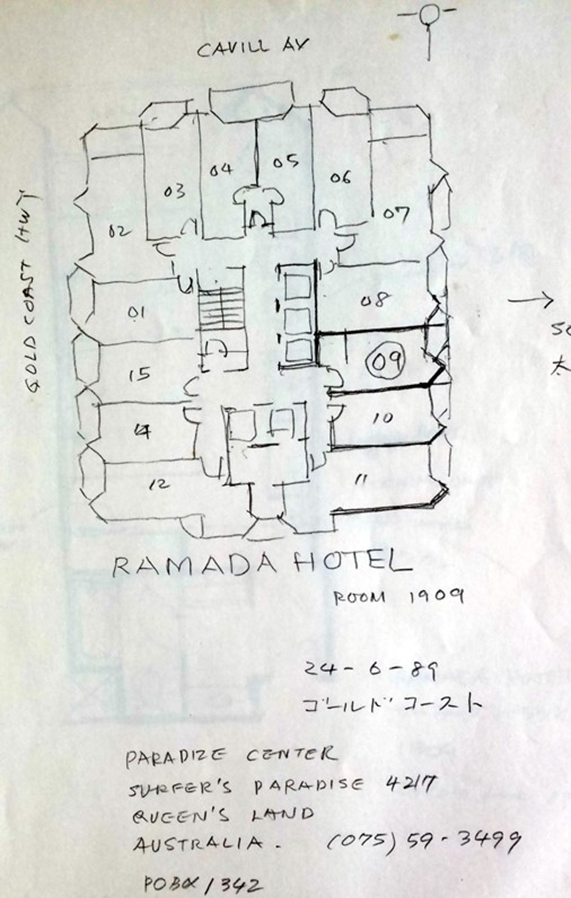 CAVILL AV
GOLD COAST HWY
04
05
03
06
02
07
01
08
15
09
14
10
12
11
RAMADA HOTEL
ROOM 1909
24-6-89
ゴールドコースト
PARADIZE CENTER
SURFER'S PARADISE 4217
QUEEN'S LAND
AUSTRALIA. (075) 59-3499
POBOX 1342